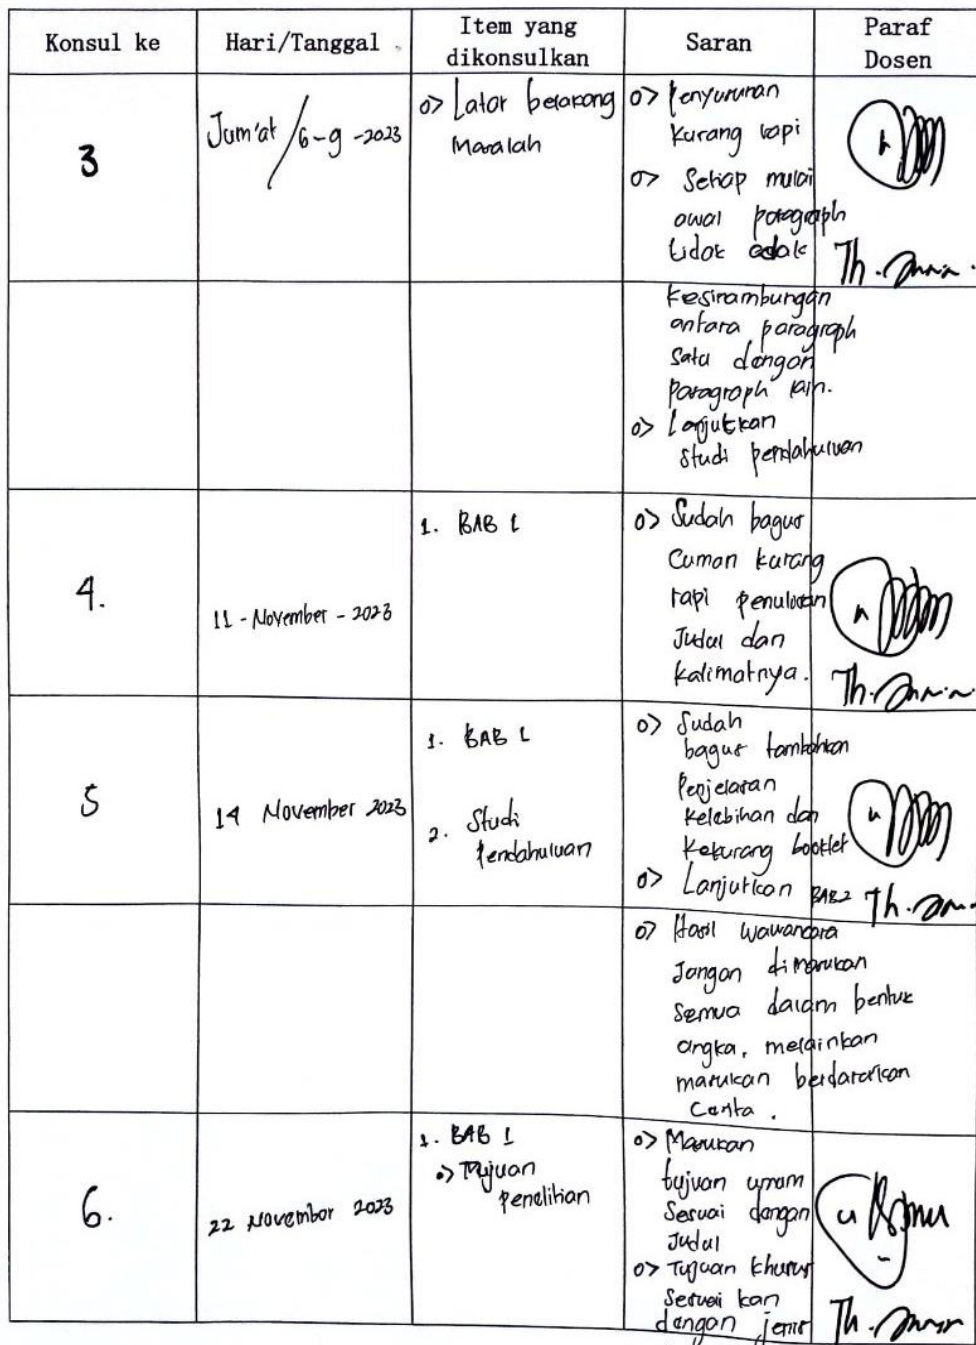 Konsul ke
Hari/Tanggal
Item yang
dikonsulkan
Saran
Paraf
Dosen
3
Jum'at / 6-9-2023
o> Latar belakang
Masalah
o> Penyusunan
kurang rapi
o> Setiap mulai
awal paragraph
tidak adak
Th.
kesinambungan
antara paragraph
satu dengan
paragraph lain.
o> Lanjutkan
studi pendahuluan
4.
11 - November - 2023
1. BAB 1
o> Sudah bagus
Cuman kurang
rapi penulisan
Judul dan
kalimatnya.
Th.
5
14 November 2023
1. BAB 1
2. Studi
Pendahuluan
o> Sudah
bagus tambahkan
Penjelasan
kelebihan dan
kekurang booklet
o> Lanjutkan BAB 2
Th.
o> Hasil wawancara
Jangan dimasukan
semua dalam bentuk
angka, melainkan
masukan berdasarkan
Cerita.
6.
22 November 2023
1. BAB 1
o> Tujuan
penelitian
o> Masukan
tujuan umum
Sesuai dengan
Judul
o> Tujuan khusus
Sesuai kan
dengan jenis
Th.